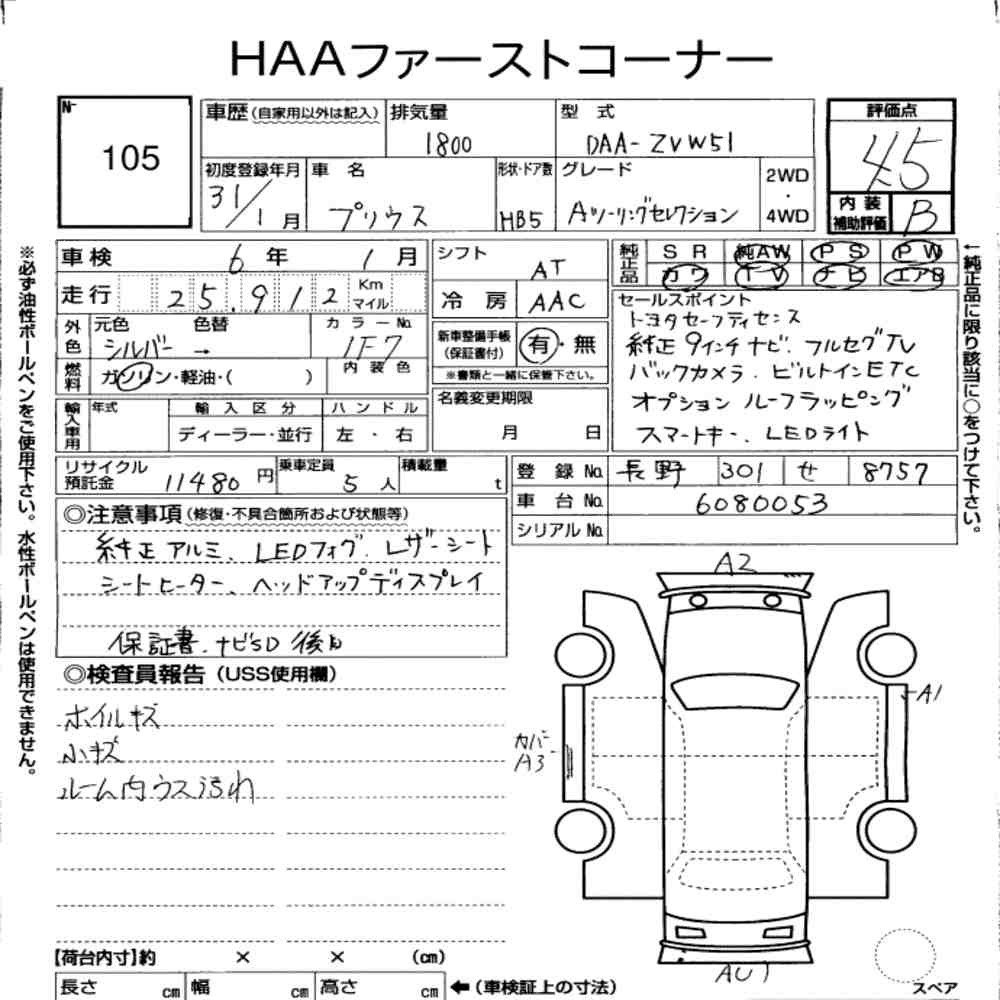 HAAファーストコーナー
N- 105
車歴 (自家用以外は記入)
排気量 1800
型式 DAA-ZVW51
評価点 4.5
初度登録年月 31/1月
車名 プリウス
形状・ドア数 HB5
グレード Aツーリングセレクション
2WD・4WD
内装補助評価 B
車検 6年 1月
走行 25,912 Km マイル
シフト AT
冷房 AAC
純正品 SR 純AW PS PW
カワ TV ナビ エアB
外色 元色 シルバー 色替 →
カラーNo. 1F7
内装色
燃料 ガソリン・軽油・( )
新車整備手帳(保証書付) 有・無
※書類と一緒に保管下さい。
名義変更期限 月 日
セールスポイント
トヨタセーフティセンス
純正9インチナビ、フルセグTV
バックカメラ、ビルトインETC
オプション ルーフラッピング
スマートキー、LEDライト
輸入車用 年式 輸入区分 ハンドル
ディーラー・並行 左・右
リサイクル預託金 11480円
乗車定員 5人
積載量 t
登録No. 長野 301 せ 8757
車台No. 6080053
シリアルNo.
◎注意事項 (修復・不具合箇所および状態等)
純正アルミ、LEDフォグ、レザーシート
シートヒーター、ヘッドアップディスプレイ
保証書、ナビSD後日
◎検査員報告 (USS使用欄)
ホイルキズ
小キズ
ルーム内ウス汚れ
A2
A1
カバー
A3
AU1
スペア
【荷台内寸】約 × × (cm)
長さ cm 幅 cm 高さ cm ←(車検証上の寸法)
※必ず油性ボールペンをご使用下さい。水性ボールペンは使用できません。
←純正品に限り該当に○をつけて下さい。